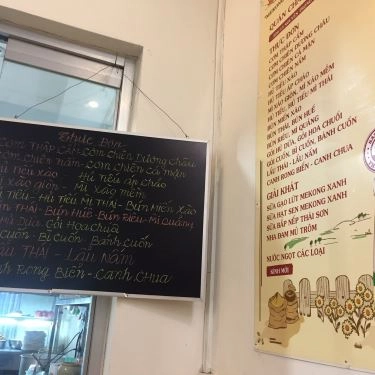 Thực Đơn
Cơm Thập Cẩm - Cơm Chiên Dương Châu
Cơm chiên nấm - Cơm chiên cá mặn
Hủ tiếu áp chảo
Mì xào giòn - Mì xào mềm
Hủ Tiếu Mì Thái - Bún Miến Xào
Bún Thái - Bún Huế - Bún Riêu - Mì Quảng
Gỏi Hoa chuối
Cuốn - Bì Cuốn - Bánh cuốn
Lẩu Thái - Lẩu Nấm
Canh Rong Biển - Canh Chua
QUÁN CHAY
THỰC ĐƠN
CƠM THẬP CẨM
CƠM CHIÊN DƯƠNG CHÂU
CƠM CHIÊN CÁ MẶN
HỦ TIẾU XÀO
MÌ XÀO GIÒN, MÌ XÀO MỀM
HỦ TIẾU, HỦ TIẾU MÌ THÁI
BÚN THÁI, BÚN HUẾ
BÚN RIÊU, MÌ QUẢNG
GỎI MÍT, GỎI HOA CHUỐI
GỎI CUỐN, BÌ CUỐN, BÁNH CUỐN
LẨU THÁI - LẨU NẤM
CANH RONG BIỂN - CANH CHUA
GIẢI KHÁT
SỮA GẠO LỨT MEKONG XANH
SỮA HẠT SEN MEKONG XANH
SỮA BẮP NẾP THÁI SƠN
NHA ĐAM MỦ TRÔM
NƯỚC NGỌT CÁC LOẠI
KÍNH MỜI